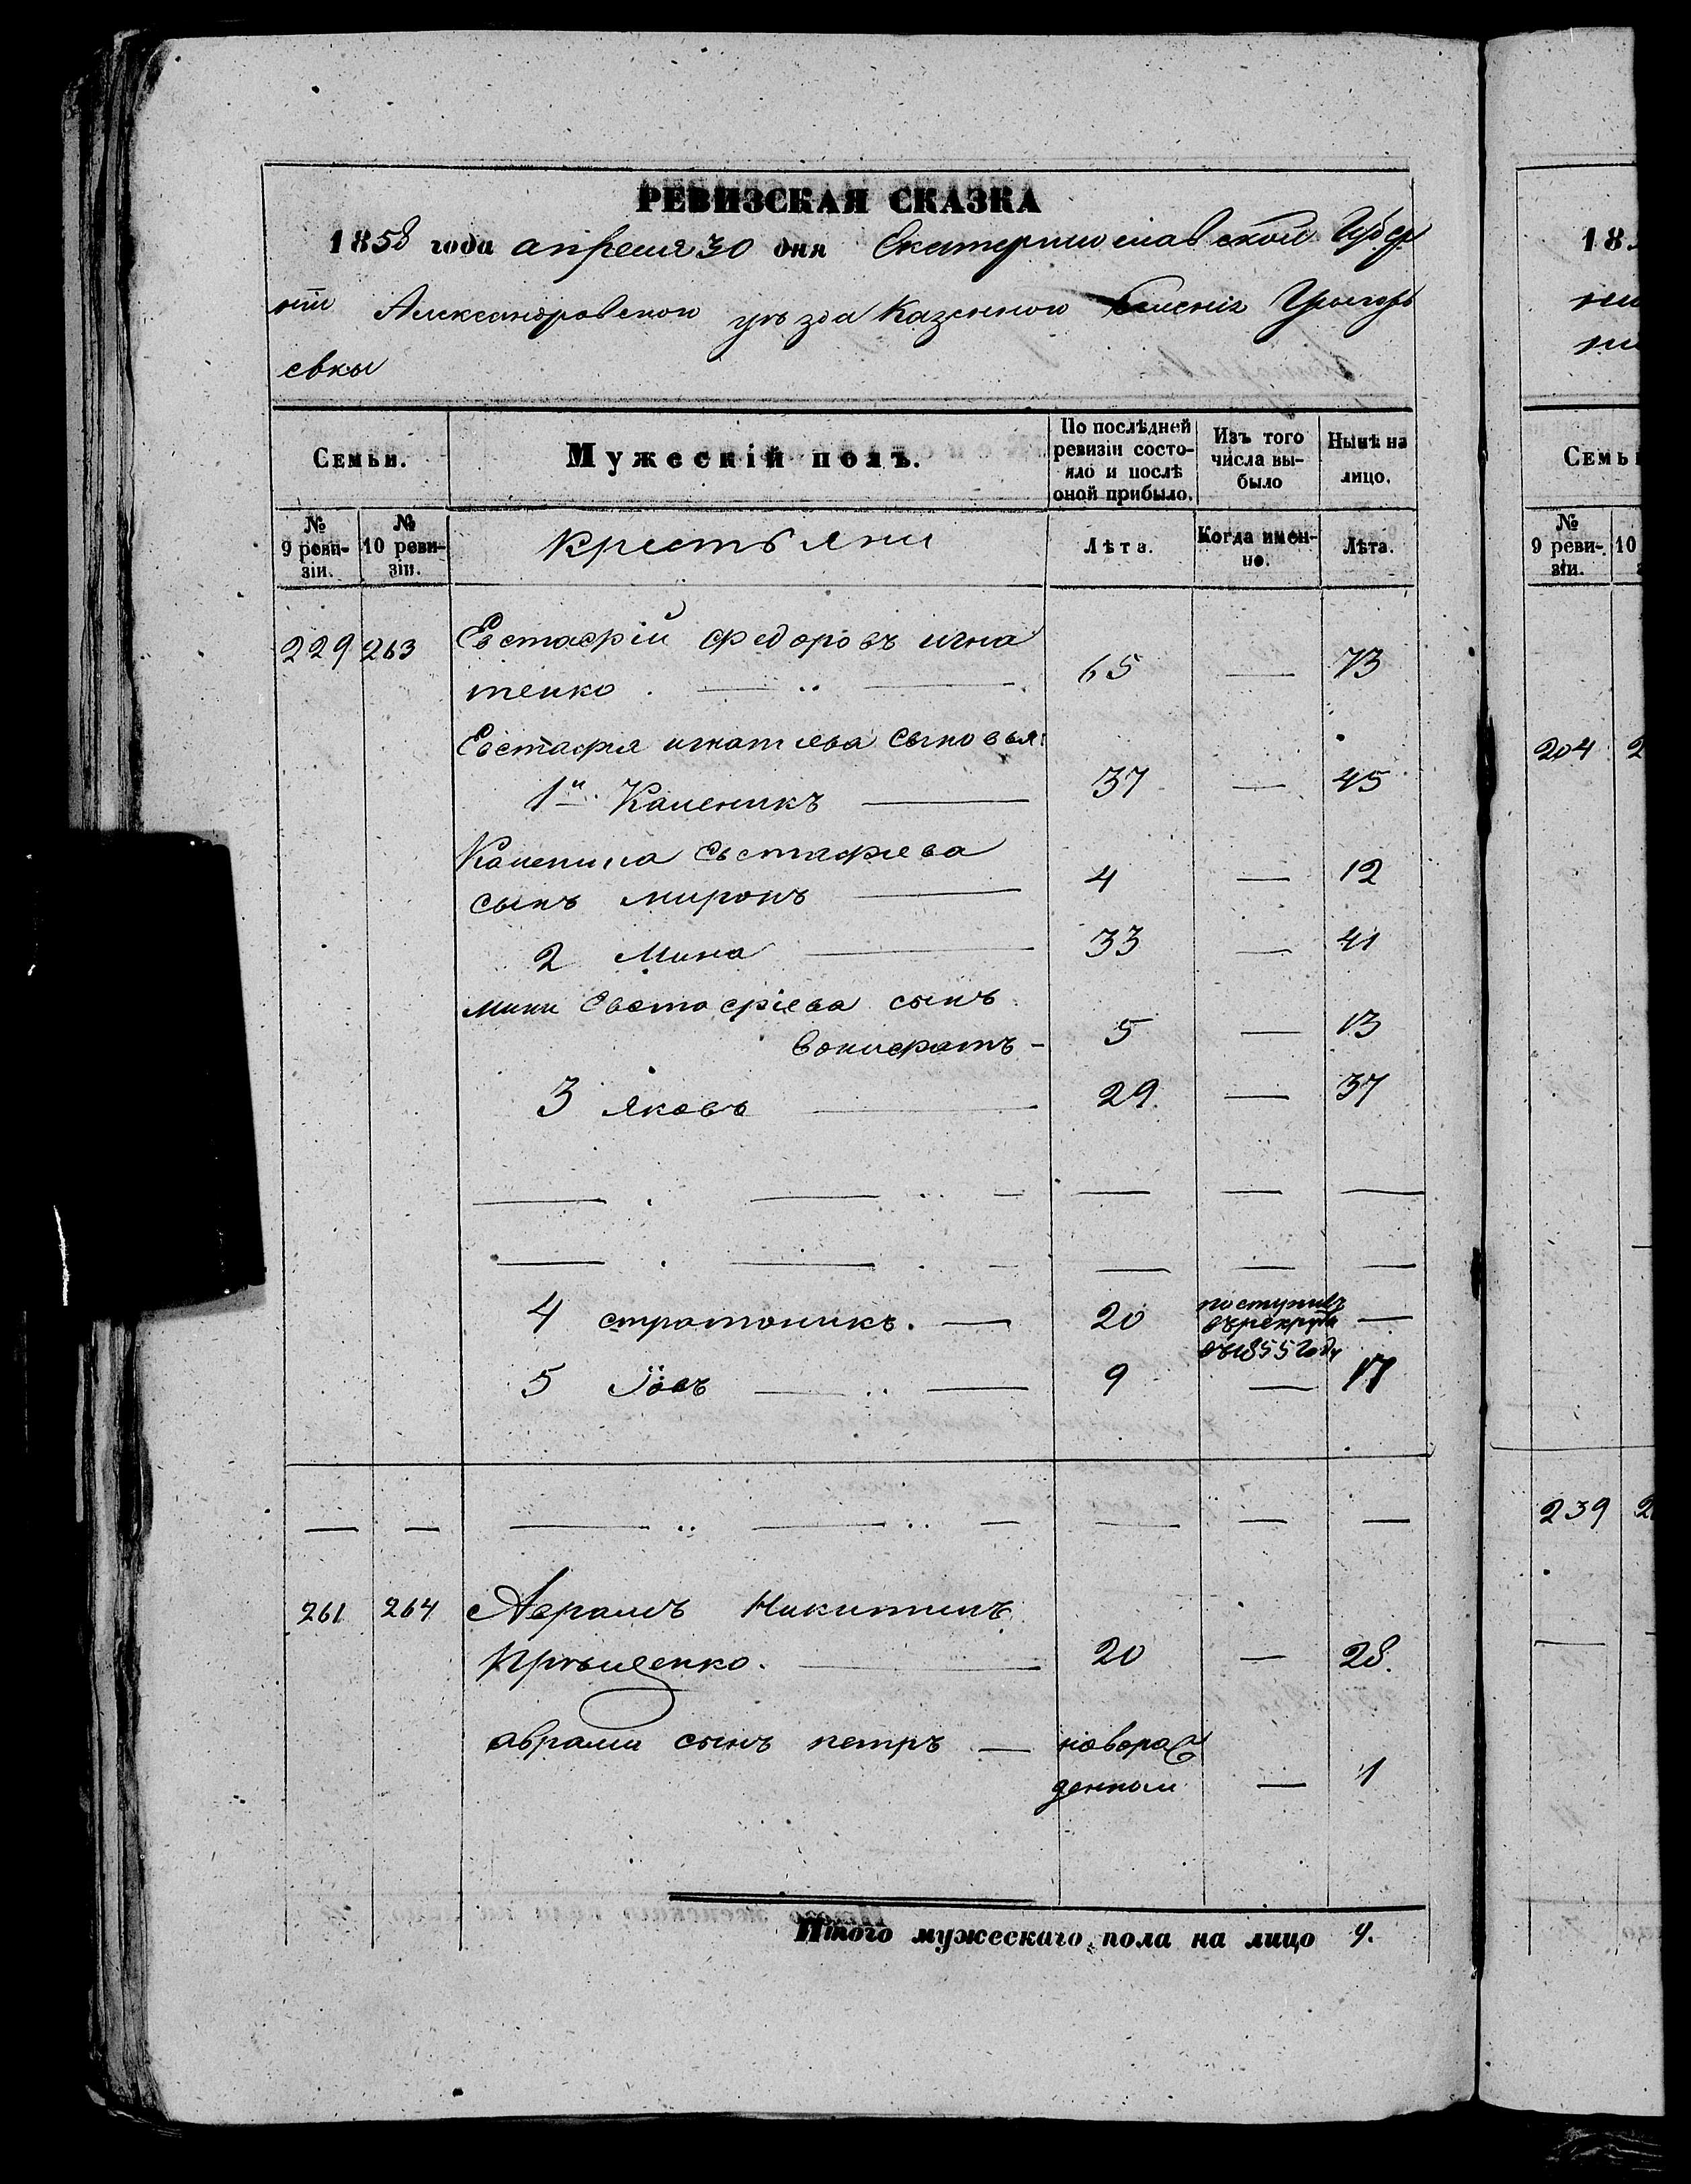 РЕВИЗСКАЯ СКАЗКА
1858 года апреля 30 дня Екатеринославской Губер
нїи Александровского уѣзда Казенного селенія Григорь
евки
Семьи. Мужескій полъ. По послѣдней ревизіи состояло и послѣ оной прибыло. Изъ того числа выбыло Нынѣ на лицо.
№ 9 ревизіи. № 10 ревизіи. Крестьяни Лѣта. Когда именно. Лѣта.
229 263 Евстафій Федоровъ игна
тенко . — .. — 65 — 73
Евстафия игнатиева сыновья:
1й Каленикъ — 37 — 45
Каленика Евстафиева
сынъ миронъ — 4 — 12
2 Мина — 33 — 41
мини Евстафіева сынъ
вонифатъ - 5 — 13
3 яковъ — 29. — 37
— . — .. — — — —
— . — . — — — —
4 стратоникъ. — 20 поступилъ въ рекруты въ 1855 году —
5 Їовъ — .. — 9 — 17
— — — .. — .. — — — —
261 264 Аврамъ Никитинъ
Прощенко. — 20 — 28.
аврама сынъ петръ — новорож
денный — 1
Итого мужескаго пола на лицо 9.
18
204 2
239 2
Семьи
№
9 реви- 10
зіи.